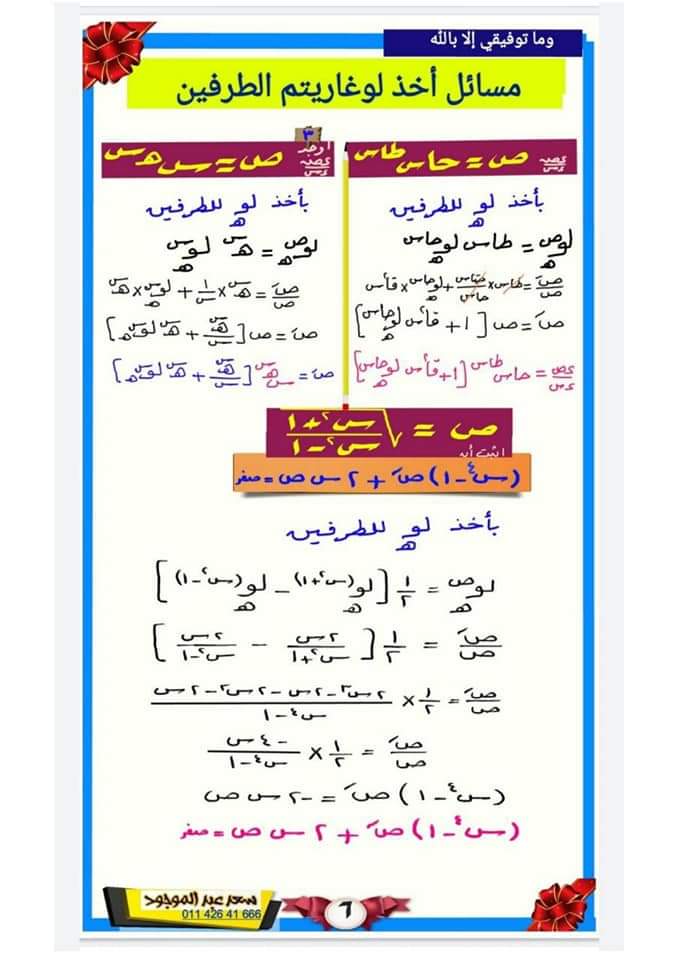 وما توفيقي إلا بالله
مسائل أخذ لوغاريتم الطرفين
ص = حاس^طاس
بأخذ لو_هـ للطرفين
لو_هـ ص = طاس لو_هـ حاس
صَ/ص = طاس × حتاس/حاس + لو_هـ حاس × قا٢س
صَ = ص [١ + قا٢س لو_هـ حاس]
ءص/ءس = حاس^طاس [١ + قا٢س لو_هـ حاس]
٣
أوجد ءص/ءس ص = س^هـ^س
بأخذ لو_هـ للطرفين
لو_هـ ص = هـ^س لو_هـ س
صَ/ص = هـ^س × ١/س + لو_هـ س × هـ^س
صَ = ص [هـ^س/س + هـ^س لو_هـ س]
صَ = س^هـ^س [هـ^س/س + هـ^س لو_هـ س]
ص = √(س٢+١/س٢-١)
اثبت أنه
(س٤-١) صَ + ٢ س ص = صفر
بأخذ لو_هـ للطرفين
لو_هـ ص = ١/٢ [لو_هـ (س٢+١) - لو_هـ (س٢-١)]
صَ/ص = ١/٢ [٢س/س٢+١ - ٢س/س٢-١]
صَ/ص = ١/٢ × ٢س٣-٢س-٢س٣-٢س/س٤-١
صَ/ص = ١/٢ × -٤س/س٤-١
(س٤-١) صَ = -٢ س ص
(س٤-١) صَ + ٢ س ص = صفر
سعد عبد الموجود
011 426 41 666
٦